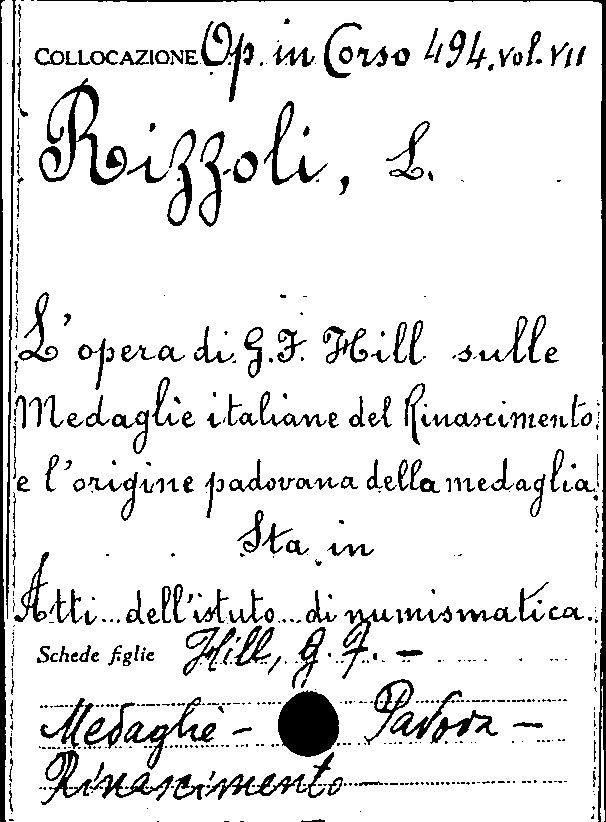 COLLOCAZIONE Op. in Corso 494. vol. VII
Rizzoli, L.
L'opera di G.F. Hill sulle
Medaglie italiane del Rinascimento
e l'origine padovana della medaglia.
Sta in
Atti... dell'istuto... di numismatica.
Schede figlie Hill, G. F. -
Medaglie - Padova -
Rinascimento